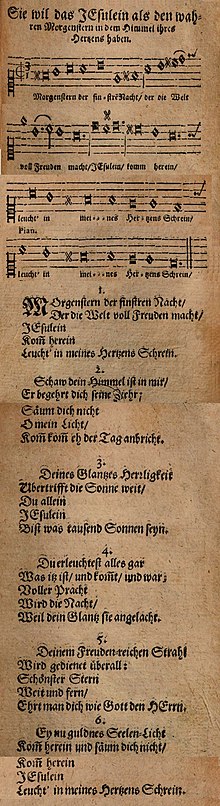 Sie wil das JEsulein als den wah-
ren Morgenstern in dem Himmel ihres
Hertzens haben.
Morgenstern der fin-strē Nacht/ der die Welt
voll Freuden macht/JEsulein/ komm herein/
leucht' in mei-nes Her-tzens Schrein/
Pian.
leucht' in mei-nes Her-tzens Schrein/
1.
MOrgenstern der finstren Nacht/
Der die Welt voll Freuden macht/
JEsulein
Kom̄ herein/
Leucht' in meines Hertzens Schrein.
2.
Schaw dein Himmel ist in mir/
Er begehrt dich seine Ziehr;
Säum dich nicht
O mein Licht/
Kom̄ kom̄ eh der Tag anbricht.
3.
Deines Glantzes Herzligkeit
Ubertrifft die Sonne weit/
Du allein
JEsulein
Bist was tausend Sonnen seyn.
4.
Du erleuchtest alles gar
Was itz ist/ und kom̄t/ und war;
Voller Pracht
Wird die Nacht/
Weil dein Glantz sie angelacht.
5.
Deinem Freuden-reichen Strahl
Wird gedienet überall:
Schönster Stern
Weit und fern/
Ehrt man dich wie Gott den HErrn.
6.
Ey nu guldnes Seelen-Licht
Kom̄ herein und säum dich nicht/
Kom̄ herein
JEsulein
Leucht' in meines Hertzens Schrein.